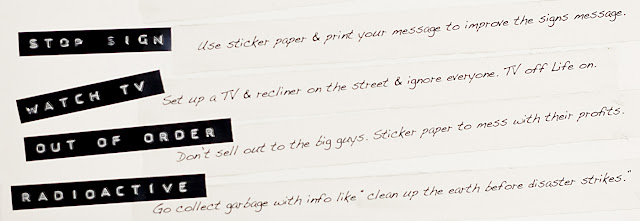 STOP SIGN Use sticker paper & print your message to improve the signs message.
WATCH TV Set up a TV & recliner on the street & ignore everyone. TV off Life on.
OUT OF ORDER Don't sell out to the big guys. Sticker paper to mess with their profits.
RADIOACTIVE Go collect garbage with info like "clean up the earth before disaster strikes."